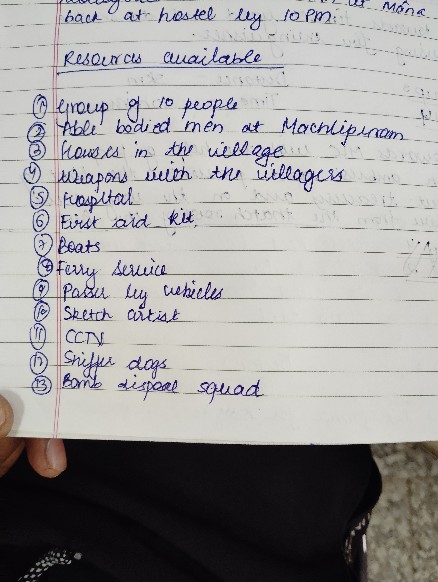 back at hostel by 10 PM.
Resources available
1 Group of 10 people
2 Able bodied men at Machlipinam
3 Houses in the village
4 Weapons with the villagers
5 Hospital
6 First aid kit.
7 Boats
8 Ferry Service
9 Passer by vehicles
10 Sketch artist
11 CCTV
12 Sniffer dogs
13 Bomb disposal squad